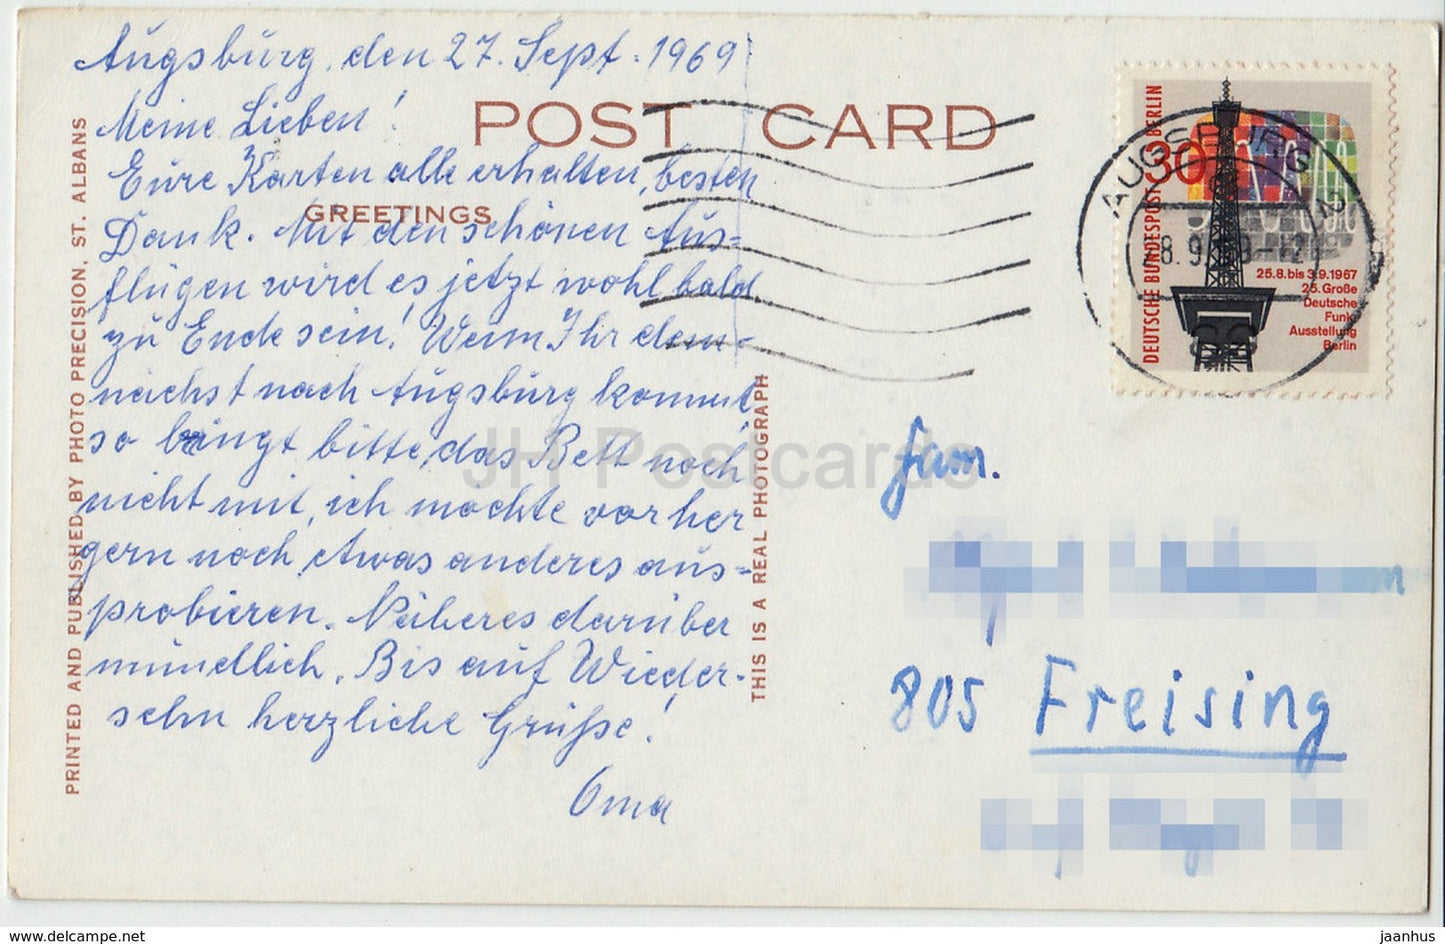 Augsburg, den 27. Sept. 1969
Meine Lieben!
POST CARD
Eure Karten alle erhalten, besten
GREETINGS
Dank. Mit den schönen Aus=
flügen wird es jetzt wohl bald
zu Ende sein! Wenn Ihr dem=
nächst nach Augsburg kommt,
so bringt bitte, das Bett noch
nicht mit, ich möchte vorher
gern noch etwas anderes aus=
probieren. Näheres darüber
mündlich. Bis auf Wieder-
sehn herzliche Grüße!
Oma
PRINTED AND PUBLISHED BY PHOTO PRECISION, ST. ALBANS
THIS IS A REAL PHOTOGRAPH
DEUTSCHE BUNDESPOST BERLIN
30
25.8. bis 3.9.1967
25. Große
Deutsche
Funk
Ausstellung
Berlin
AUGSBURG
Fam.
805 Freising
JH Postcards
www.delcampe.net
jaanhus